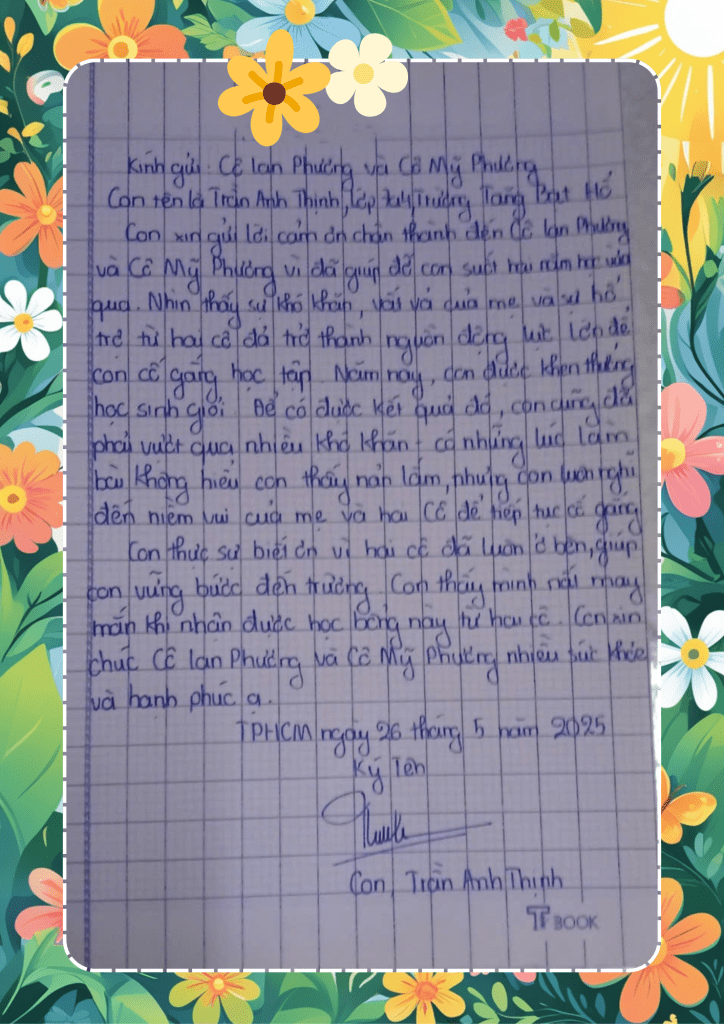 Kính gửi: Cô Lan Phương và Cô Mỹ Phương
Con tên là Trần Anh Thịnh, lớp Trường Tăng Bạt Hổ
Con xin gửi lời cảm ơn chân thành đến Cô Lan Phương
và Cô Mỹ Phương vì đã giúp đỡ con suốt hai năm học vừa
qua. Nhìn thấy sự khó khăn, vất vả của mẹ và sự hỗ
trợ từ hai cô đã trở thành nguồn động lực lớn để
con cố gắng học tập. Năm nay, con được khen thưởng
học sinh giỏi. Để có được kết quả đó, con cũng đã
phải vượt qua nhiều khó khăn - có những lúc làm
bài không hiểu con thấy nản lắm, nhưng con luôn nghĩ
đến niềm vui của mẹ và hai Cô để tiếp tục cố gắng
Con thực sự biết ơn vì hai cô đã luôn ở bên, giúp
con vững bước đến trường. Con thấy mình rất may
mắn khi nhận được học bổng này từ hai cô. Con xin
chúc Cô Lan Phương và Cô Mỹ Phương nhiều sức khỏe
và hạnh phúc ạ.
TPHCM ngày 26 tháng 5 năm 2025
Ký Tên
Thịnh
Con, Trần Anh Thịnh
TT BOOK